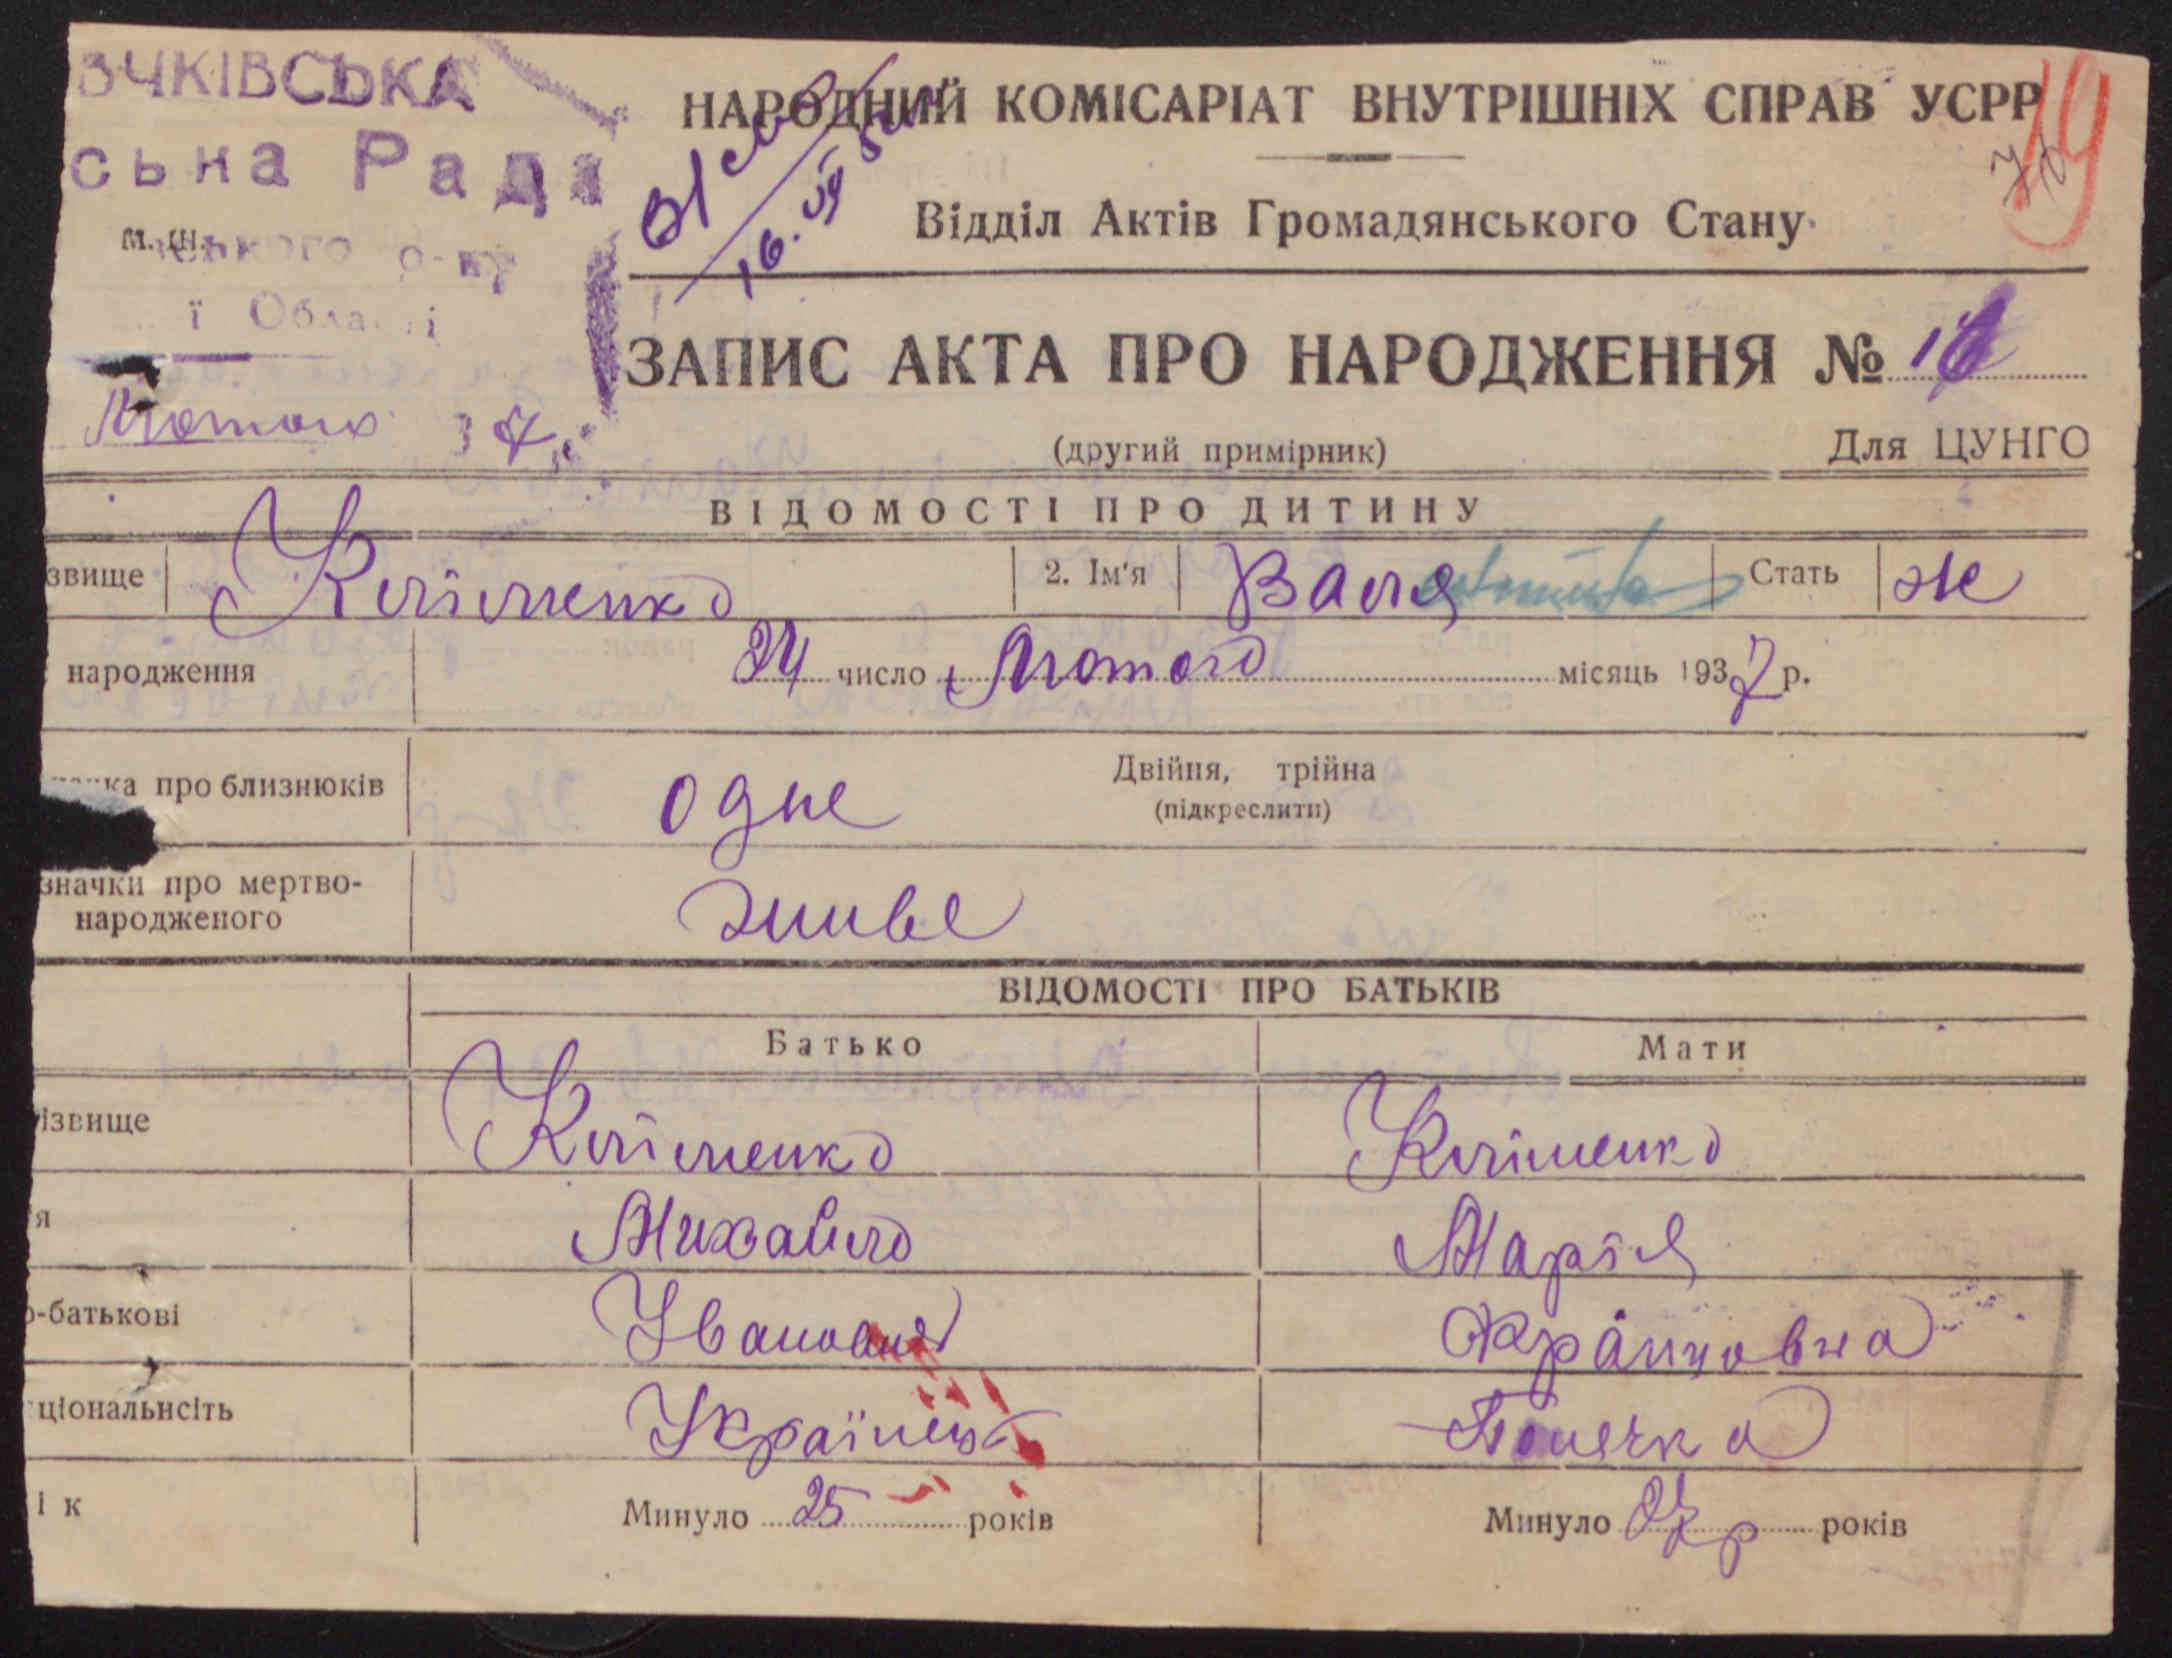 ВЧКІВСЬКА
ська Рада
м. ш.
ького р-ну
ї Області
Лютого 37
НАРОДНИЙ КОМІСАРІАТ ВНУТРІШНІХ СПРАВ УСРР
Відділ Актів Громадянського Стану
ЗАПИС АКТА ПРО НАРОДЖЕННЯ №
(другий примірник) Для ЦУНГО
ВІДОМОСТІ ПРО ДИТИНУ
звище Кліменко 2. Ім'я Валя Стать ж
народження 24 число Лютого місяць 1937 р.
ка про близнюків одне Двійня, трійна
(підкреслити)
значки про мертво-
народженого живе
ВІДОМОСТІ ПРО БАТЬКІВ
Батько Мати
ізвище Кліменко Кліменко
я Михайло Марія
о-батькові Іванович Францовна
ціональнсіть Українець Полячка
і к Минуло 25 років Минуло років